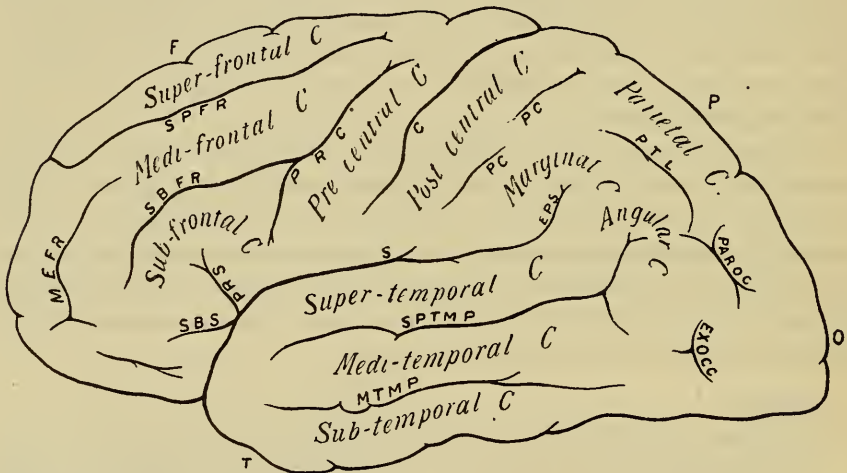 F
Super-frontal C
SPFR
Medi-frontal C
SBFR
MEFR
Sub-frontal C
PRS
SBS
PRC
Pre central C
C
Post central C
PC
PC
Parietal C.
P
PTL
Marginal C
EPS
Angular C
PAROC
EXOCC
O
S
Super-temporal C
SPTMP
Medi-temporal C
MTMP
Sub-temporal C
T